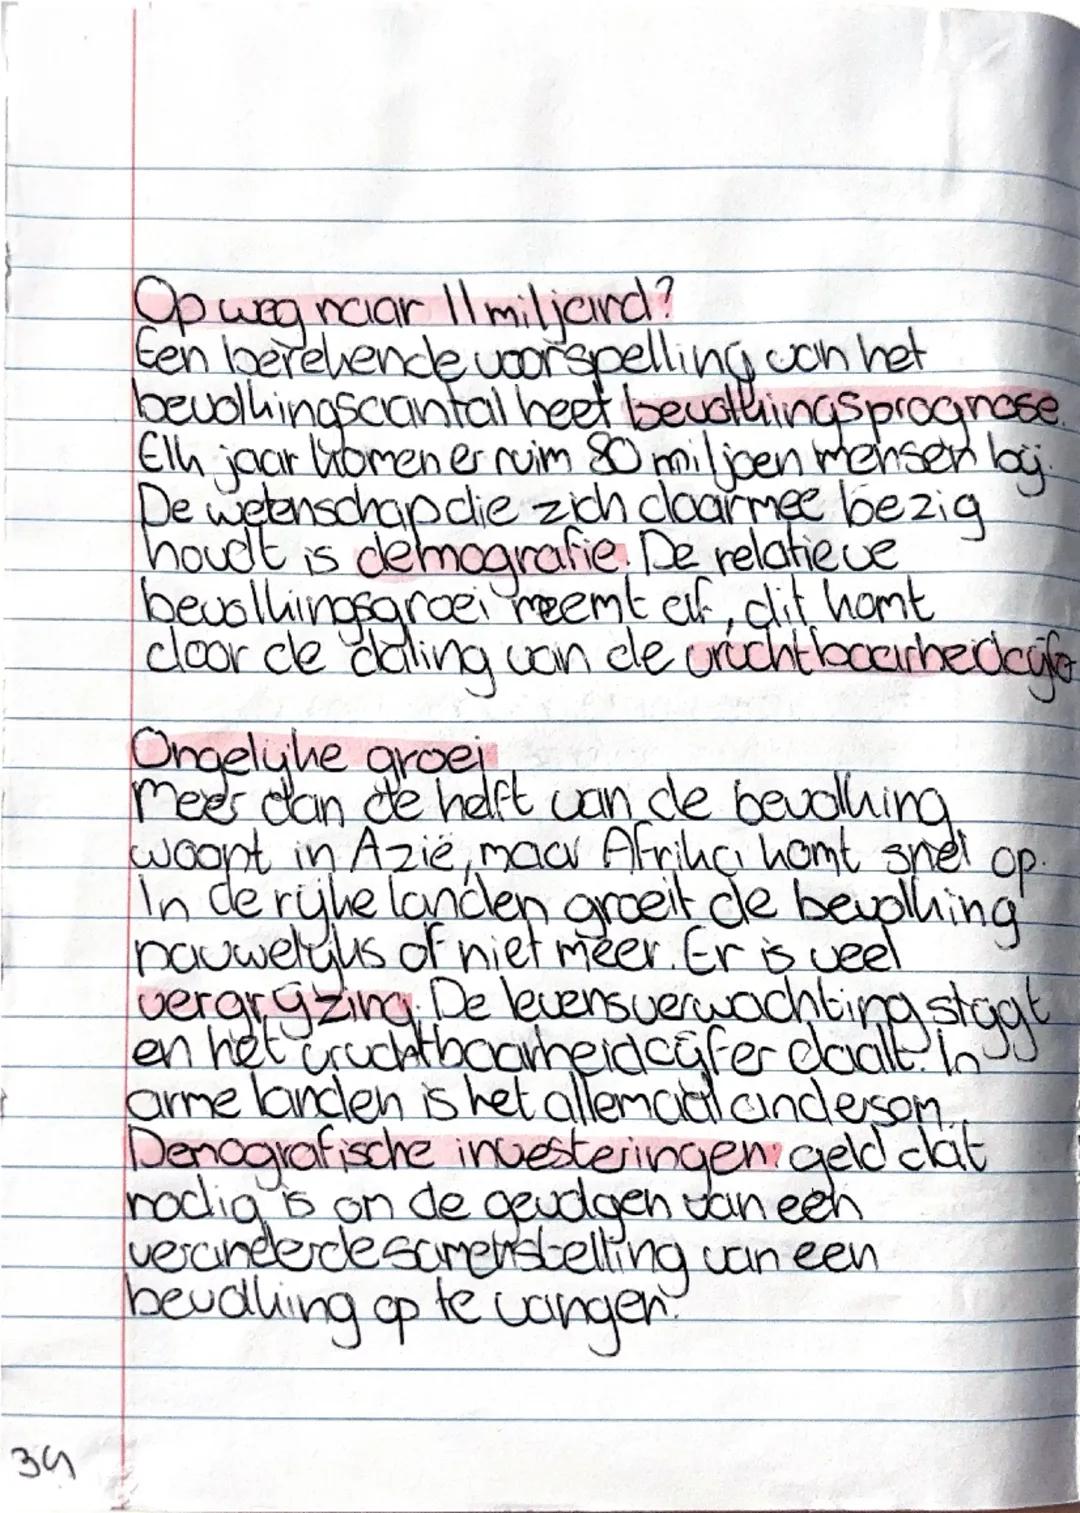 Op weg naar 11 miljard?
Een berekende voorspelling van het
bevolkingsaantal heet bevolkingsprognose.
Elk jaar komen er ruim 80 miljoen mensen bij.
De wetenschap die zich daarmee bezig
houdt is demografie. De relatieve
bevolkingsgroei neemt af, dit komt
door de daling van de vruchtbaarheidcijfer
Ongelijke groei
Meer dan de helft van de bevolking
woont in Azië, maar Afrika komt snel op.
In de rijke landen groeit de bevolking
nauwelijks of niet meer. Er is veel
vergrijzing. De levensverwachting stijgt
en het vruchtbaarheidcijfer daalt. In
arme landen is het allemaal andersom.
Demografische investeringen: geld dat
nodig is om de gevolgen van een
veranderde samenstelling van een
bevolking op te vangen.
34